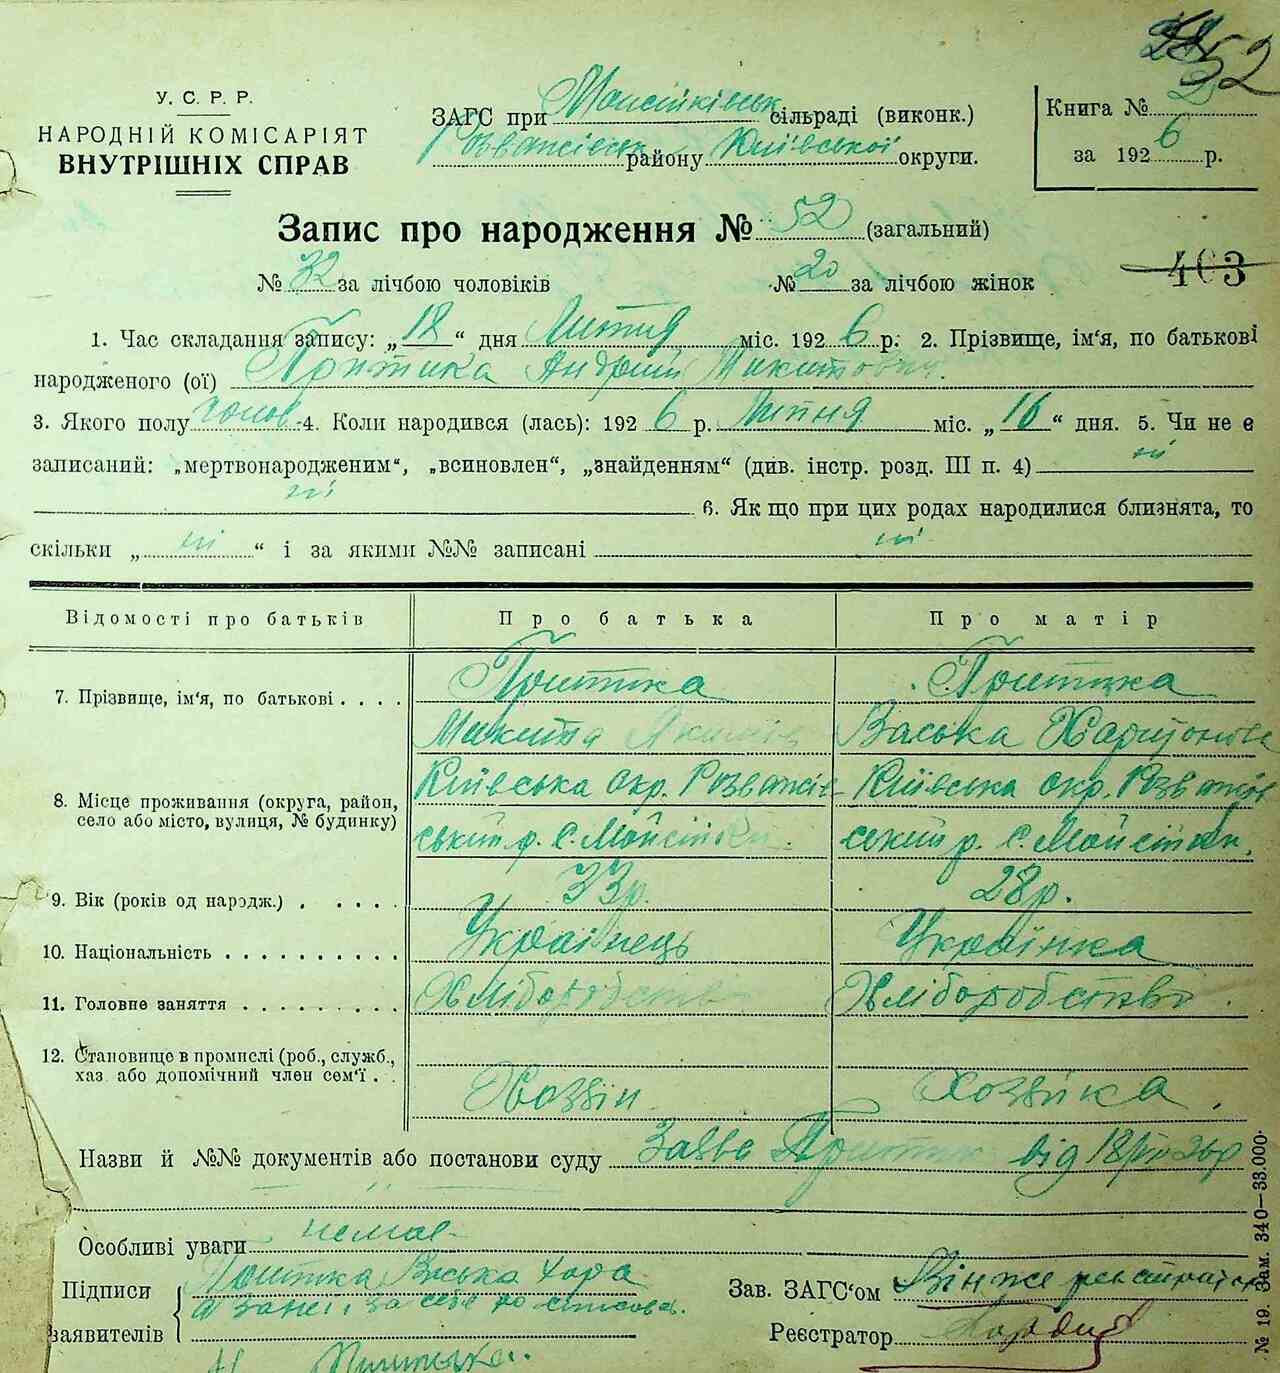 52
У. С. Р. Р.
НАРОДНІЙ КОМІСАРІЯТ
ВНУТРІШНІХ СПРАВ
ЗАГС при Мойсійківськ сільраді (виконк.)
Розважівськ району Київської округи.
Книга №
за 1926 р.
Запис про народження № 52 (загальний)
№ 32 за лічбою чоловіків № 20 за лічбою жінок
403
1. Час складання запису: „18“ дня Липня міс. 1926 р. 2. Прізвище, ім‘я, по батькові
народженого (ої) Притика Андрій Микитович.
3. Якого полу чолов 4. Коли народився (лась): 1926 р. Липня міс. „16“ дня. 5. Чи не є
записаний: „мертвонародженим“, „всиновлен“, „знайденням“ (див. інстр. розд. III п. 4) ні
ні 6. Як що при цих родах народилися близнята, то
скільки „ні“ і за якими №№ записані ні
Відомості про батьків Про батька Про матір
7. Прізвище, ім‘я, по батькові . . . . Притика Притика
Микита Васька Харитонова
8. Місце проживання (округа, район, село або місто, вулиця, № будинку) Київська окр. Розважів- Київська окр. Розважів
ський р. С. Мойсійки. ський р. С. Мойсійки.
9. Вік (років од нарадж.) . . . . . 33р. 28р.
10. Національність . . . . . . . . . . Українець Українка
11. Головне заняття . . . . . . . . . Хліборобство Хліборобство.
12. Становище в промислі (роб., служб.,
хаз. або допомічний член сем‘ї . . Хозяїн Хозяйка.
Назви й №№ документів або постанови суду Заява Притик від 18/VII 26р
Особливі уваги немає
Підписи Притика Васька
заявителів
Зав. ЗАГС‘ом Він же реєстратор
Реєстратор
№ 19. Зам. 340—33.000.